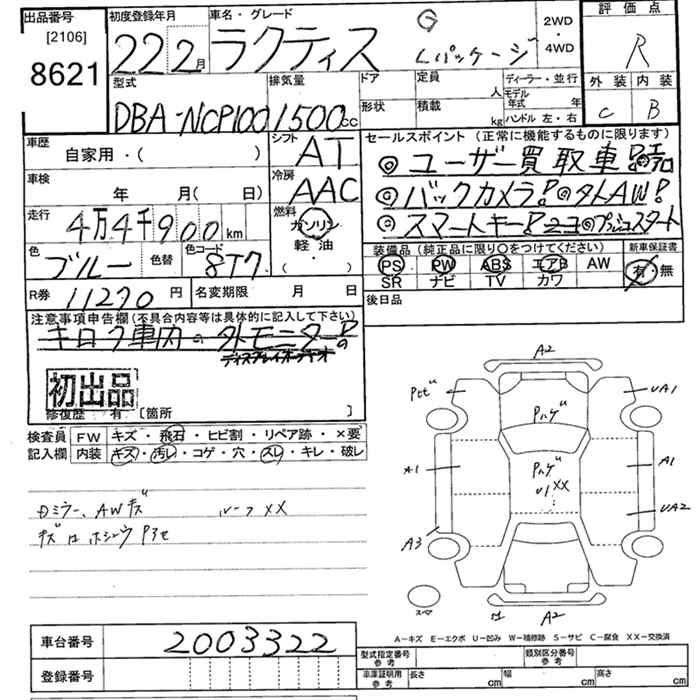 出品番号
[2106]
8621
初度登録年月
22 2月
車名・グレード
ラクティス G Lパッケージ
2WD・4WD
評価点
R
外装 内装
C B
型式
DBA-NCP100
排気量
1500cc
ドア
形状
定員 人
積載 kg
ディーラー・並行
モデル年式 年
ハンドル 左・右
車歴
自家用・( )
シフト
AT
車検
年 月( 日)
冷房
AAC
走行
4万4千900km
燃料
ガソリン
軽油
( )
色
ブルー
色替
色コード
8T7
R券 11270円
名変期限 月 日
セールスポイント(正常に機能するものに限ります)
◎ユーザー買取車!
◎バックカメラ!◎タトAW!
◎スマートキー! スタート
装備品(純正品に限り○をつけてください)
新車保証書
PS PW ABS エアB AW
SR ナビ TV カワ
有・無
後日品
注意事項申告欄(不具合内容等は具体的に記入して下さい)
初出品
修復歴 有[箇所 ]
検査員記入欄
FW キズ・飛石・ヒビ割・リペア跡・×要
内装 キズ・汚レ・コゲ・穴・スレ・キレ・破レ
Dミラー、AWキズ ルーフXX
A2
UA1
Pハゲ
A1 A1
Pハゲ
U1 XX
UA2
A3
スペア
A2
A-キズ E-エクボ U-凹み W-補修跡 S-サビ C-腐食 XX-交換済
車台番号 2003322
登録番号
型式指定番号参考
類別区分番号参考
車庫証明用参考 長さ cm 幅 cm 高さ cm